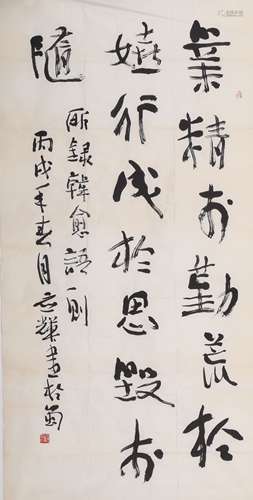 業精於勤荒於
嬉行成於思毀於
隨
所錄韓愈語一則
丙戌年春月志輝書於蜀